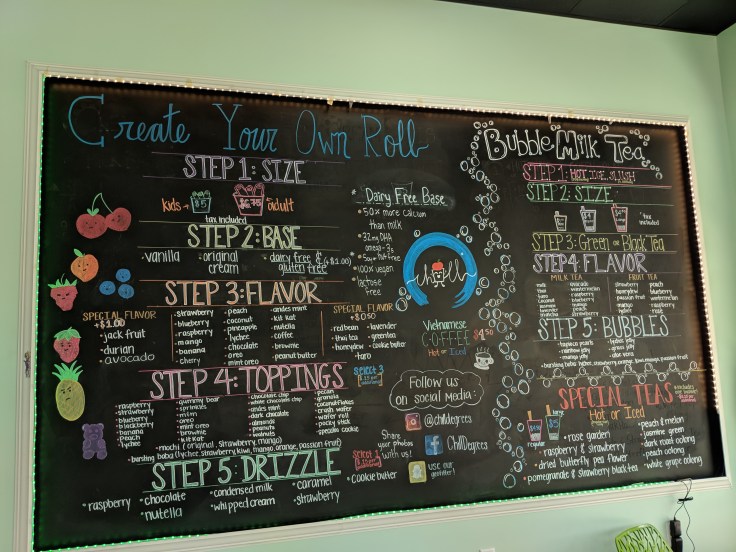 Create Your Own Roll
STEP 1: SIZE
kids → $5
$6.75 → adult
tax included
STEP 2: BASE
•vanilla
•original cream
•dairy free & gluten free (+$1.00)
STEP 3: FLAVOR
SPECIAL FLAVOR
+$1.00
•jack fruit
•durian
•avocado
•strawberry
•blueberry
•raspberry
•mango
•banana
•cherry
•peach
•coconut
•pineapple
•lychee
•chocolate
•oreo
•mint oreo
•andes mint
•kit kat
•nutella
•coffee
•brownie
•peanut butter
SPECIAL FLAVOR
+$0.50
•red bean
•thai tea
•honeydew
•taro
•lavender
•green tea
•cookie butter
STEP 4: TOPPINGS
select 3
•raspberry
•strawberry
•blueberry
•banana
•peach
•lychee
•gummy bear
•sprinkles
•m&m
•oreo
•mint oreo
•brownie
•kit kat
•chocolate chip
•white chocolate chip
•andes mint
•dark chocolate
•almonds
•peanuts
•walnuts
•pecan
•granola
•coconut flakes
•crush wafer
•wafer roll
•pocky stick
•speculoo cookie
•mochi (original, strawberry, mango)
•bursting boba (lychee, strawberry, kiwi, mango, orange, passion fruit)
STEP 5: DRIZZLE
select 1
•raspberry
•chocolate
•nutella
•condensed milk
•whipped cream
•caramel
•strawberry
•cookie butter
Dairy Free Base
•50x more calcium than milk
•32mg DHA omega-3s
•soy + nut free
•100% vegan
•lactose free
chill
Vietnamese
COFFEE $4.50
Hot or Iced
Follow us on social media:
@chilldegrees
ChillDegrees
use our geofilter!
Share your photos with us!
Bubble Milk Tea
STEP 1: HOT, ICE, SLUSH
STEP 2: SIZE
*tax included
STEP 3: Green or Black Tea
STEP 4 FLAVOR
MILK TEA
FRUIT TEA
STEP 5: BUBBLES
•tapioca pearls
•rainbow jelly
•mango jelly
•lychee jelly
•grass jelly
•aloe vera
•bursting boba: lychee, strawberry, kiwi, mango, passion fruit
SPECIAL TEAS
Hot or Iced
regular
large
•rose garden
•raspberry & strawberry
•dried butterfly pea flower
•pomegranate & strawberry black tea
•peach & melon
•jasmine green
•dark roast oolong
•peach oolong
•white grape oolong